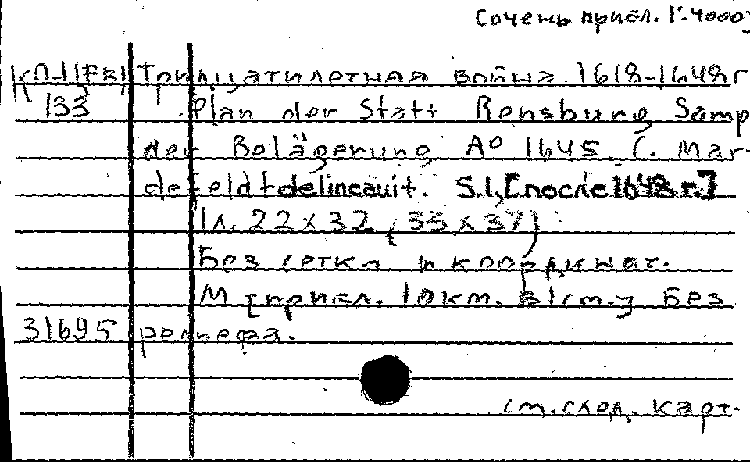 Сочень прибл. 1:4000]
КП-1(FB) Тридцатилетная война 1618-1648 г
133 Plan der Statt Rensburg Samp
der Belägerung A° 1645. C. Mar-
defeldt delineauit. S.l., [после 1648 г.]
1 л. 22 x 32 (33 x 37)
Без сетки и координат.
М [прибл. 10 км. в 1 см.] Без
31695 рельефа.
см. след. карт.